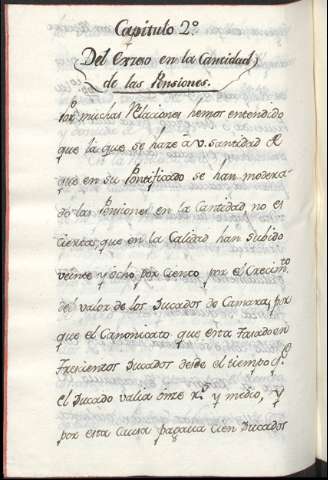 Capitulo 2º
Del Exceso en la Cantidad,
de las Pensiones.
Por muchas Relaciones hemos entendido
que la que se haze a V. Santidad de
que en su Pontificado se han modera-
do las Pensiones en la Cantidad, no es
cierta; que en la Calidad han subido
veinte y ocho por ciento por el Crecim.to
del valor de los Ducados de Camara; por
que el Canonicato que esta Tasado en
Trescientos Ducados desde el tiempo q.e
el Ducado valia onze r.s y medio, y
por esta Causa pagava Cien Ducados